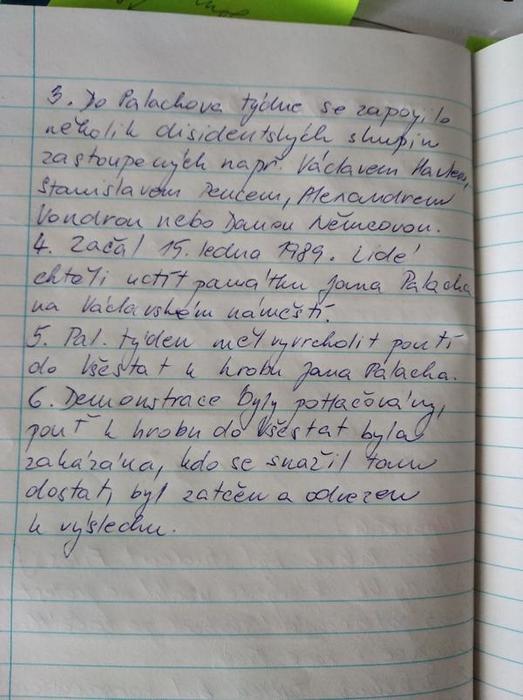 3. Do Palachova týdne se zapojilo
několik disidentských skupin
zastoupených např. Václavem Havlem,
Stanislavem Pencem, Alexandrem
Vondrou nebo Danou Němcovou.
4. Začal 15. ledna 1989. Lidé
chtěli uctít památku Jana Palacha
na Václavském náměstí.
5. Pal. týden měl vyvrcholit poutí
do Všestat k hrobu Jana Palacha.
6. Demonstrace byly potlačovány,
pouť k hrobu do Všestat byla
zakázána, kdo se snažil tam
dostat, byl zatčen a odvezen
k výslechu.